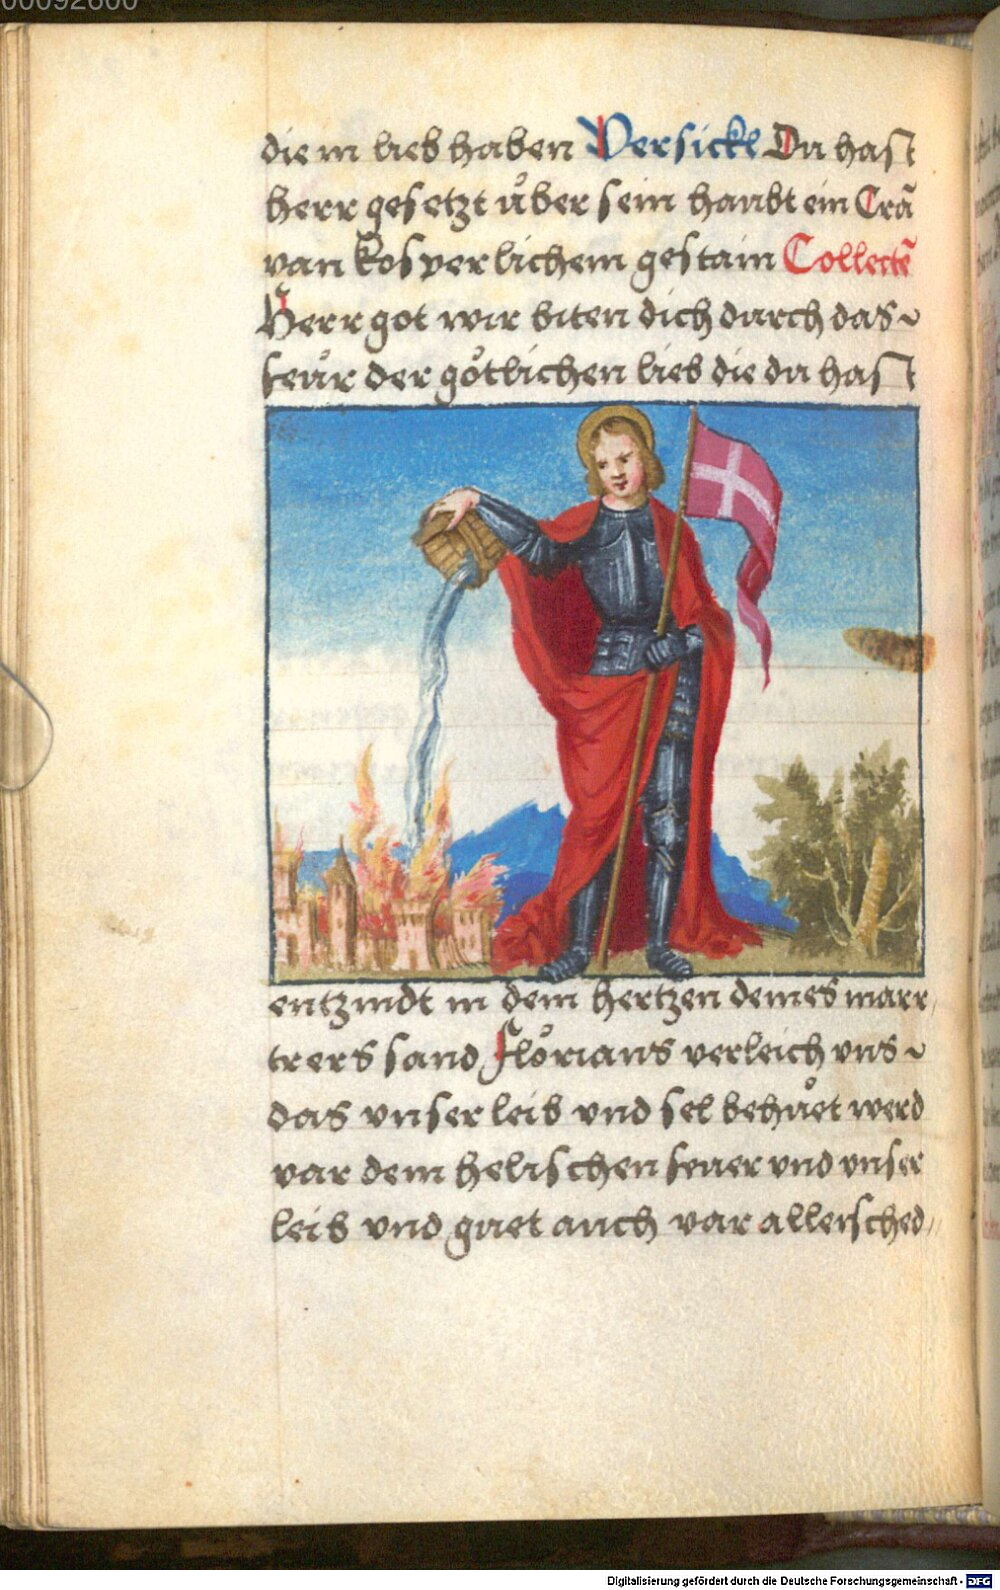 00092600
die in lieb haben Versickl Du hast
herr gesetzt über sein haubt ein Crā
van kosperlichem gestain Collectē
Herr got wir biten dich durch das
feür der götlichen lieb die du hast
entzindt in dem hertzen deines marr
trers sand Flörians verleich vns
das vnser leib vnd sel behüet werd
var dem helischen feuer vnd vnser
leib vnd guet auch var allersched
Digitalisierung gefördert durch die Deutsche Forschungsgemeinschaft - DFG